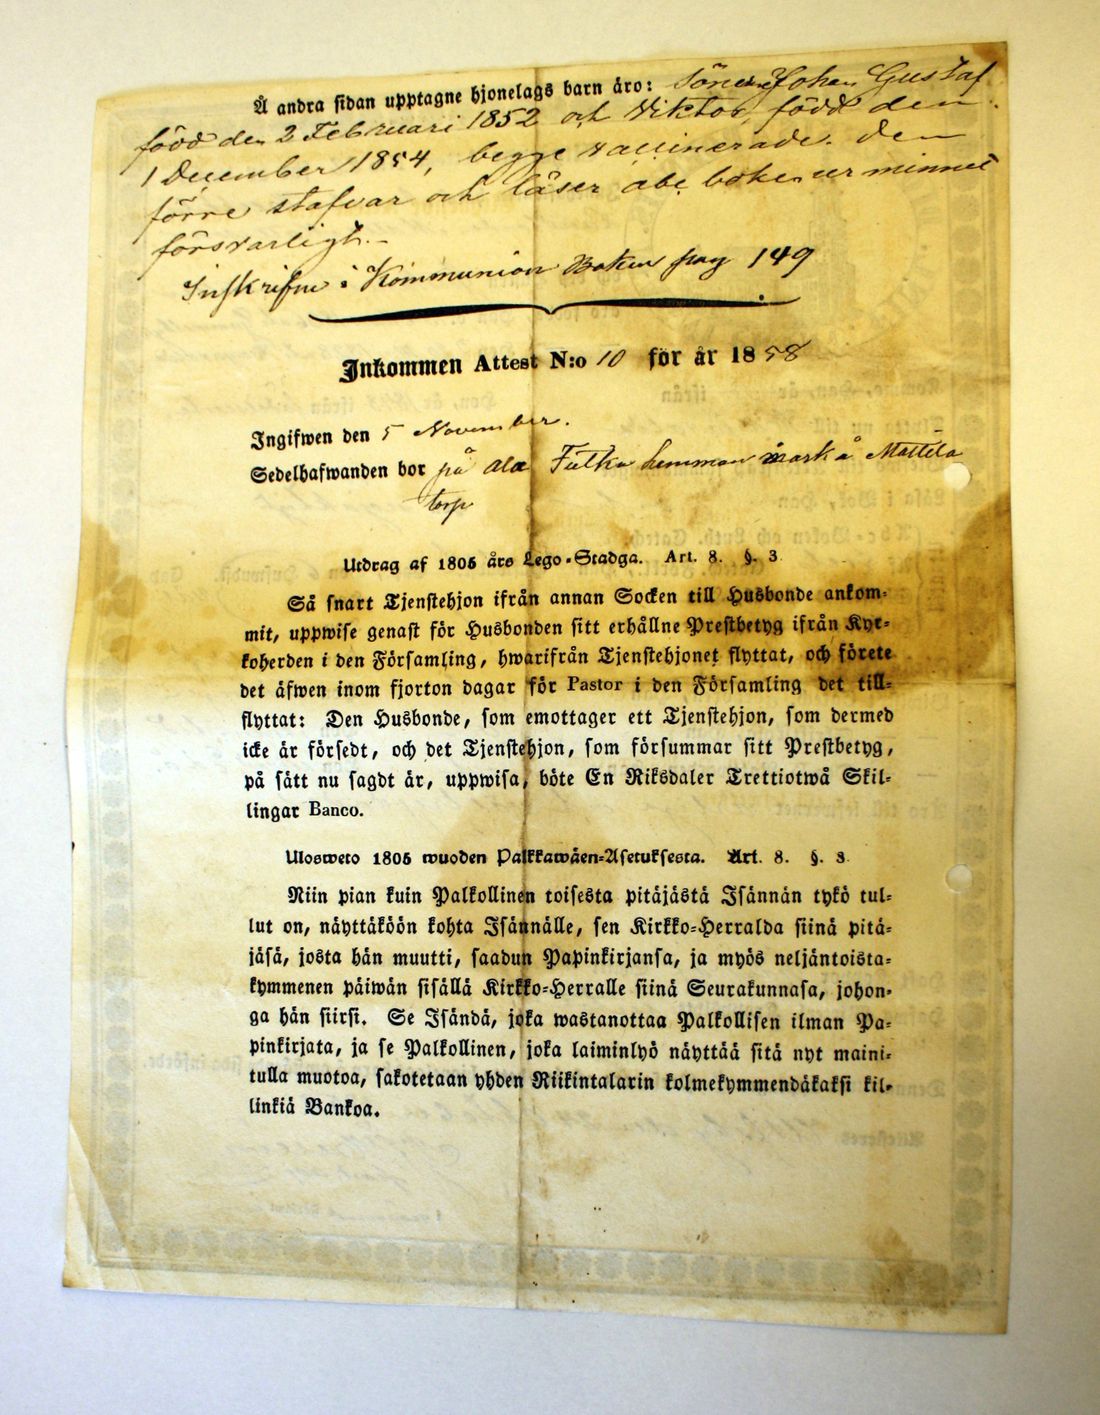 Å andra sidan upptagne hjonelags barn äro: Söner Johan Gustaf
född den 2 Februari 1852 och Viktor, född den
1 December 1854, begge vaccinerade. Den
förre stafvar och läser abc boken ur minnet
försvarligt.
Inskrifne i Kommunion Boken pag 149
Inkommen Attest N:o 10 för år 1858
Ingifwen den 5 November.
Sedelhafwanden bor på hemman mark å Mattila
torp
Utdrag af 1805 års Lego-Stadga. Art. 8. §. 3
Så snart Tjenstehjon ifrån annan Socken till Husbonde ankom-
mit, uppwise genast för Husbonden sitt erhållne Prestbetyg ifrån Kyr-
koherden i den Församling, hwarifrån Tjenstehjonet flyttat, och förete
det äfwen inom fjorton dagar för Pastor i den Församling det till-
flyttat: Den Husbonde, som emottager ett Tjenstehjon, som dermed
icke är försedt, och det Tjenstehjon, som försummar sitt Prestbetyg,
på sätt nu sagdt är, uppwisa, böte En Riksdaler Trettiotwå Skil-
lingar Banco.
Ulosweto 1805 wuoden Palkkawäen-Asetuksesta. Art. 8. §. 3
Niin pian kuin Palkollinen toisesta pitäjästä Isännän tykö tul-
lut on, näyttäköön kohta Isännälle, sen Kirkko-Herralda siinä pitä-
jäsä, josta hän muutti, saadun Papinkirjansa, ja myös neljäntoista-
kymmenen päiwän sisällä Kirkko-Herralle siinä Seurakunnasa, johon-
ga hän siirsi. Se Isändä, joka wastanottaa Palkollisen ilman Pa-
pinkirjata, ja se Palkollinen, joka laiminlyö näyttää sitä nyt maini-
tulla muotoa, sakotetaan yhden Riikintalarin kolmekymmendäkaksi kil-
linkiä Bankoa.